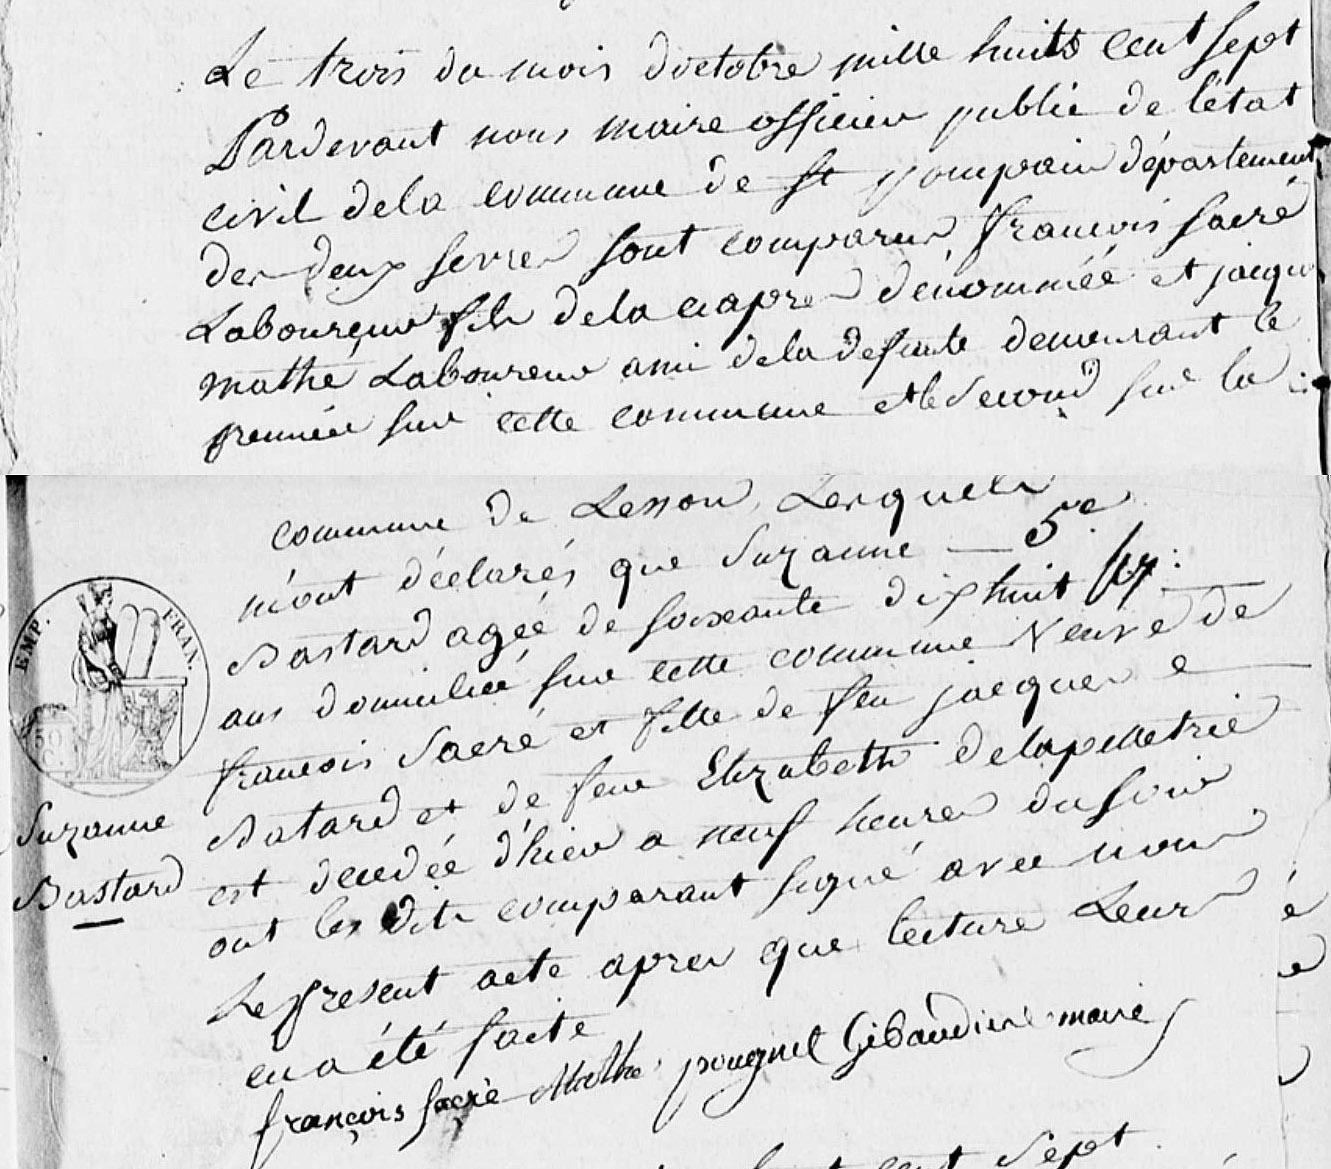 Le trois du mois d'octobre mille huits cent sept
Pardevant nous maire officier public de l'état
civil de la commune de St pompain département
des deux sevres sont comparus, françois sacré
Laboureur fils de la ciapres dénommée et jacques
mathé Laboureur ami de la defunte demeurant le
premier sur cette commune et le second sur la
commune de Lesson, Lesquels
m'ont déclarés que Suzanne — 5e
Bastard agée de soixante dix huit
ans domiciliée sur cette commune Veuve de
françois Sacré et fille de feu jacques
Batard et de feue Elizabeth delapelletrie
est decedée d'hier a neuf heures du soir
ont les dits comparant signé avec nous
Le present acte apres que lecture Leurs
en a été faite
françois sacré Mathé pougnet Gibaudiere maire
EMP. FRAN.
50 C.
Suzanne
Bastard
cent Sept